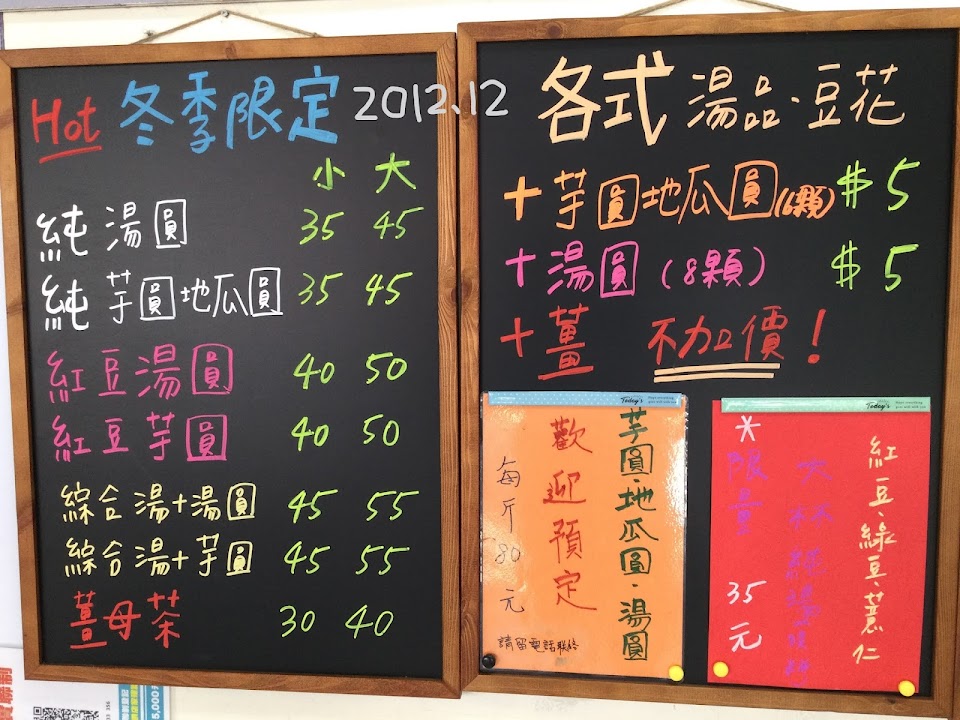 Hot 冬季限定 2012.12
小 大
純湯圓 35 45
純芋圓地瓜圓 35 45
紅豆湯圓 40 50
紅豆芋圓 40 50
綜合湯+湯圓 45 55
綜合湯+芋圓 45 55
薑母茶 30 40
各式湯品·豆花
+芋圓地瓜圓(6顆) $5
+湯圓(8顆) $5
+薑 不加價!
Today's
芋圓·地瓜圓·湯圓
歡迎預定
每斤80元
請留電話聯絡
Today's
紅豆·綠豆·薏仁
*限量 35元